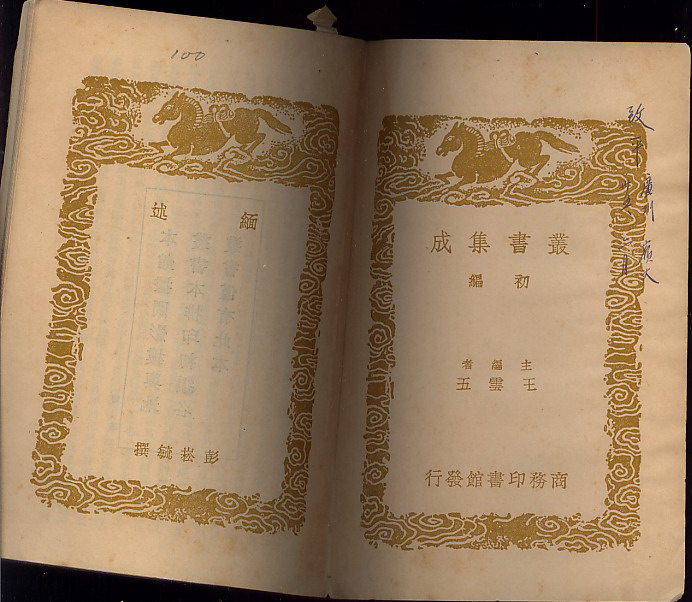 叢書集成
初編
主編者
王雲五
商務印書館發行
致平
100
緬述
彭崧毓撰